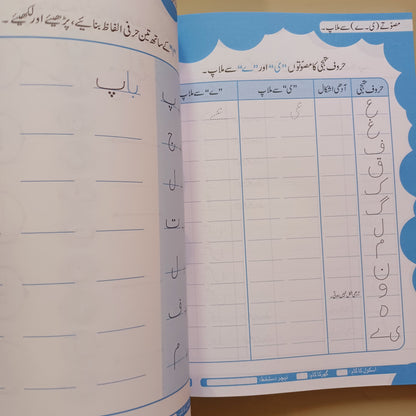 مصوّتے (ی ۔ ے) سے ملاپ ۔
حروفِ تہجی کا مصوّتوں "ی" اور "ے" سے ملاپ ۔
حروفِ تہجی
آدھی اشکال
"ی" سے ملاپ
"ے" سے ملاپ
ع عی عے
غ
ف
ق
ک
گ
ل
م
ن
و
ہ
ی ے
اسکول کا کام:
گھر کا کام:
ٹیچر دستخط:
کے ساتھ تین حرفی الفاظ بنائیے، پڑھیے اور لکھیے ۔
پ باپ
ج
ل
ت
ل
ف
م